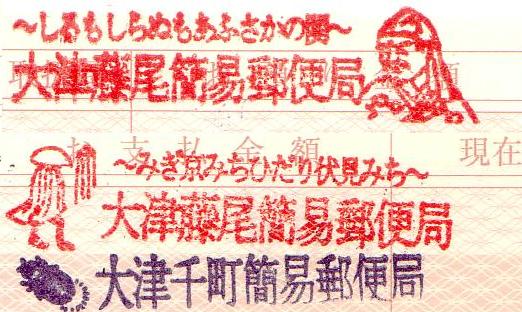 ～しるもしらぬもあふさかの関～
大津藤尾簡易郵便局
支払金額
現在
～みぎ京みちひだり伏見みち～
大津藤尾簡易郵便局
大津千町簡易郵便局